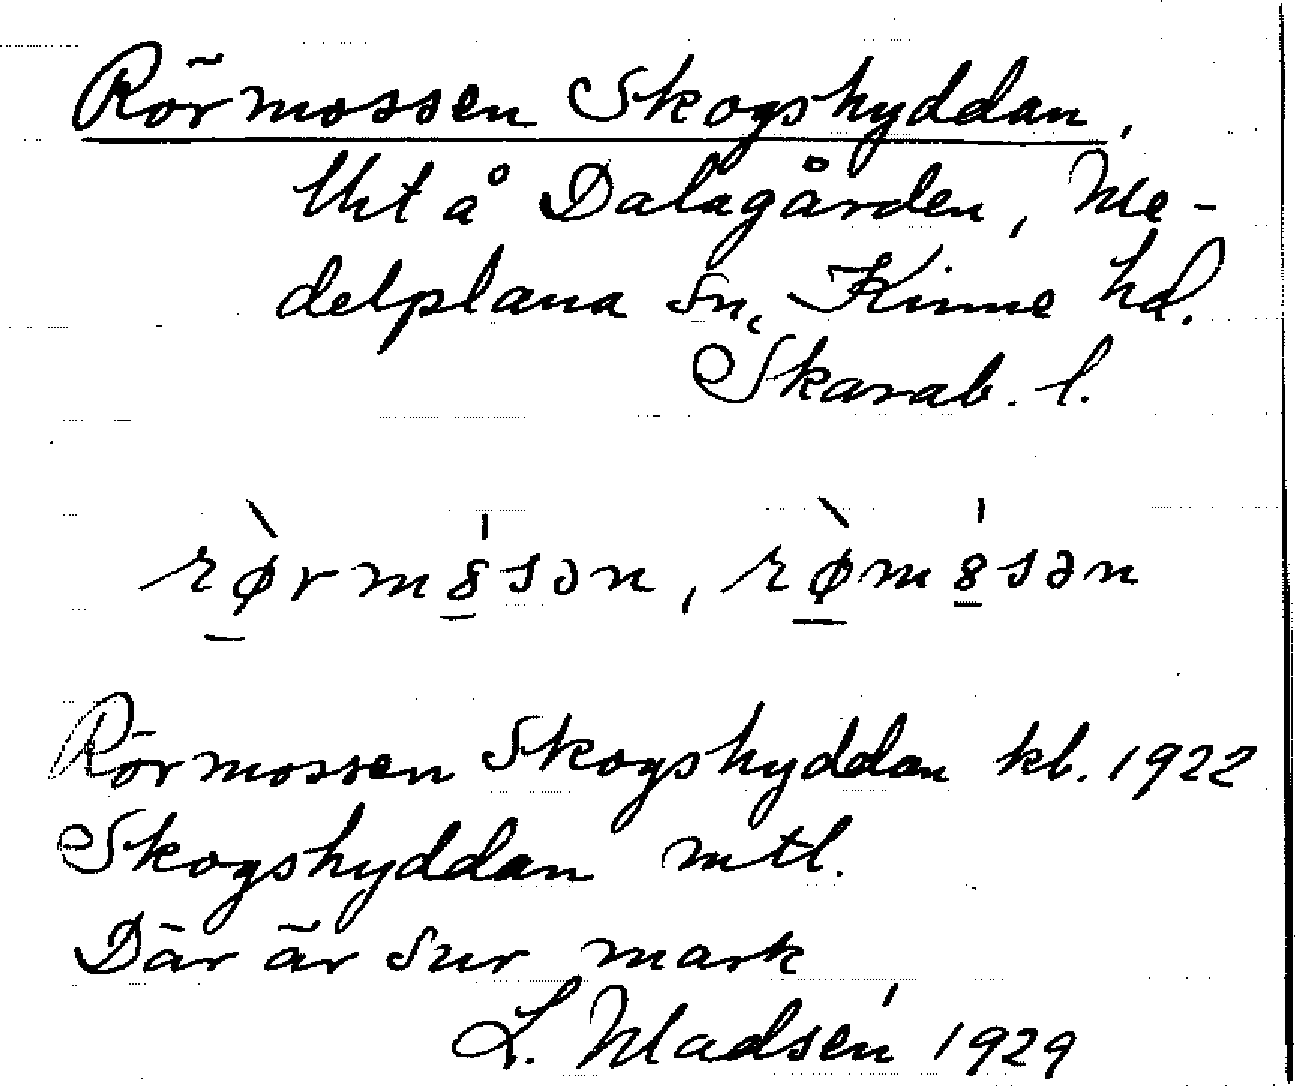 Rörmossen Skogshyddan,
lht å Dalagården, Me-
delplana sn, Kinne hd.
Skarab. l.
rø̀rmȣ́sən, rø̀mȣ́sən
Rörmossen Skogshyddan kb. 1922
Skogshyddan mtl.
Där är sur mark
L. Madsén 1929